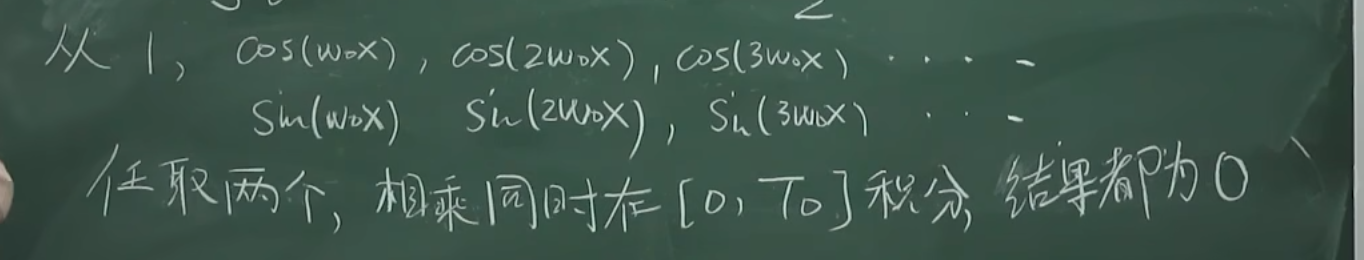 从 1, cos(ω₀x), cos(2ω₀x), cos(3ω₀x) ····
sin(ω₀x) sin(2ω₀x), sin(3ω₀x) ···
任取两个, 相乘同时在[0, T₀]积分, 结果都为0